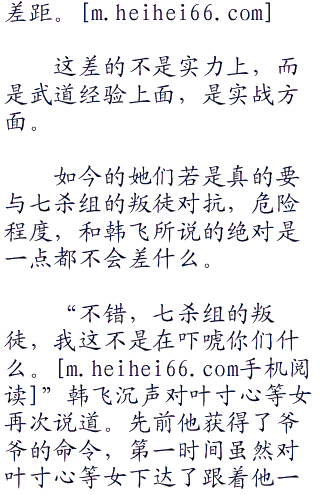 差距。[m.heihei66.com]
这差的不是实力上，而
是武道经验上面，是实战方
面。
如今的她们若是真的要
与七杀组的叛徒对抗，危险
程度，和韩飞所说的绝对是
一点都不会差什么。
“不错，七杀组的叛
徒，我这不是在吓唬你们什
么。[m.heihei66.com手机阅
读]”韩飞沉声对叶寸心等女
再次说道。先前他获得了爷
爷的命令，第一时间虽然对
叶寸心等女下达了跟着他一